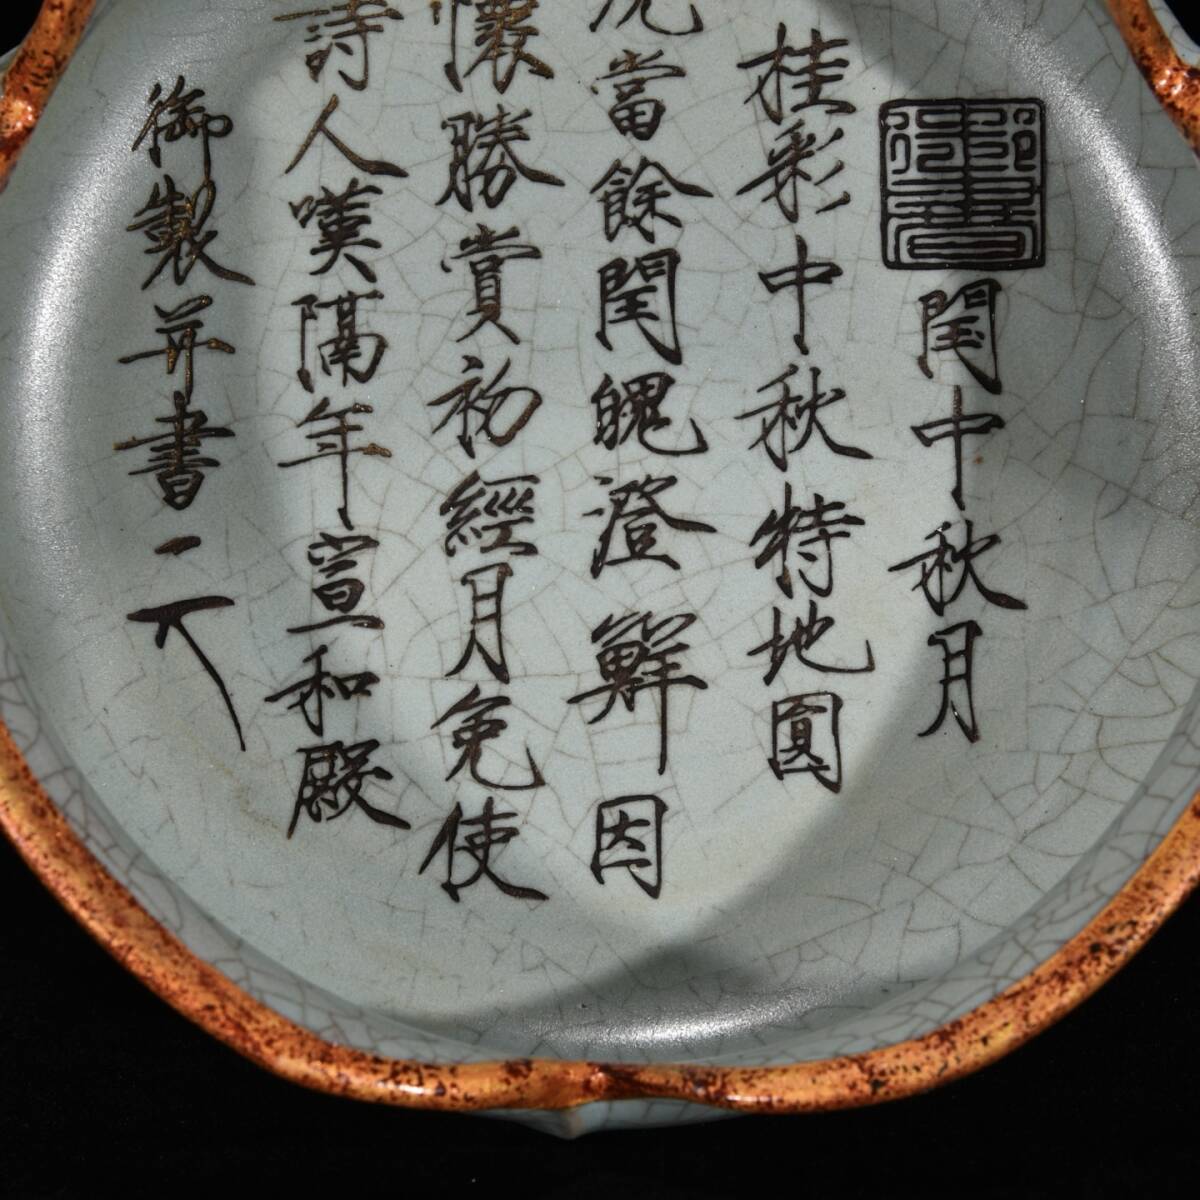 御書
閏中秋月
桂彩中秋特地圓
當餘閏魄澄鮮因
懷勝賞初經月免使
詩人嘆隔年宣和殿
御製并書